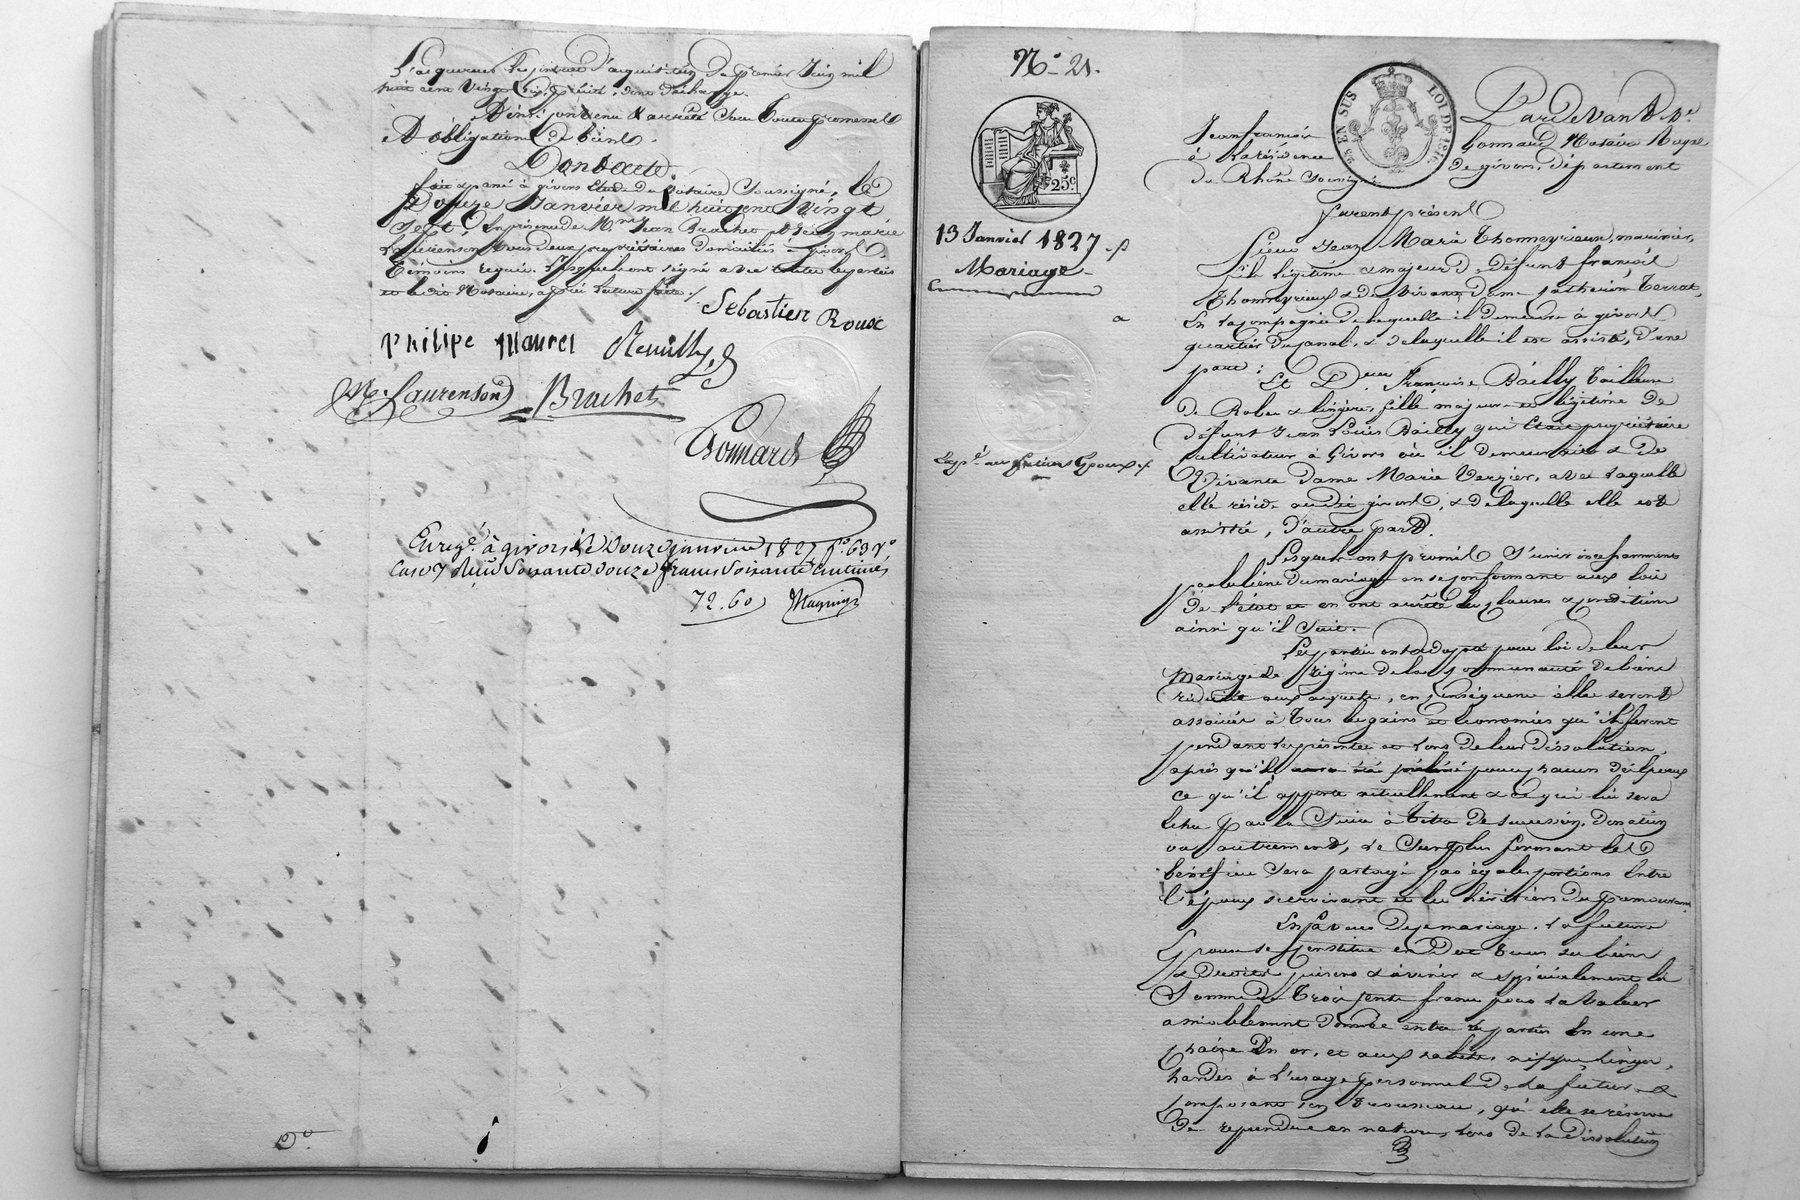 L'acquereur le contrat d'acquisition du premier Juin mil
huit cent Vingt Six, dont décharge.
Ainsi convenu & arrêté sous toutes promesses
& obligations de biens.
Dont acte.
fait & passé à givors Etude du Notaire Soussigné, le
Douze Janvier mil huit cent Vingt
Sept, En présence de M.rs Jean Brachet & marie
Laurenson tous deux propriétaires domiciliés à givors,
témoins requis. Lesquels ont signé avec toutes les parties
et le dit Notaire, après lecture faite ./.
Sebastien Roux
Philipe Maurel Remilly
M. Laurenson Brachet
Bonnard
Enregé. à givors, le Douze janvier 1827, f.o 63 v.o
Case 7 Reçu Soixante douze francs Soixante Centimes
72.60
N.o 21.
25 EN SUS LOI DE 1816.
25c.
13 Janvier 1827
Mariage
Exp.é aux futurs Epoux
Pardevant M.e
Jean françois Bonnard Notaire Royal
à la résidence de givors, département
du Rhône soussigné
furent présent
Sieur Jean Marie Thommeyrieux, marinier,
fils légitime & majeur de défunt françois
Thommeyrieux & de vivante dame Catherine Terrat,
En la compagnie de laquelle il demeure à givors
quartier du Canal, & de laquelle il est assisté, d'une
part ;
Et D.elle Françoise Bailly Tailleuse
de Robes & lingère, fille majeure et légitime de
défunt Jean Louis Bailly qui était propriétaire
cultivateur à Givors où il demeurait & de
Vivante dame Marie Vergier, avec laquelle
elle réside audit givors, & de laquelle elle est
assistée, d'autre part.
Lesquels ont promis s'unir incessamment
par les liens du mariage en se conformant aux lois
de l'état et en ont arrêté les clauses & conditions
ainsi qu'il suit.
Les parties ont adopté pour loi de leur
mariage le régime de la communauté de biens
réduite aux acquets, en conséquence elles seront
associés à tous les gains et économies qu'ils feront
pendant la présente et lors de leur dissolution,
après qu'il aura été prélevé pour chacun des époux
ce qu'il apporte actuellement & ce qui lui sera
échu par la Suite à titre de succession, donation
ou autrement, le Surplus formant le
bénéfice sera partagé par égales portions Entre
l'époux survivant et les héritiers du prémourant
En faveur du mariage, la future
Epouse se constitue en Dot tous ses biens
& Droits présens & à venir & spécialement la
Somme de Trois cents francs pour la valeur
amiablement donnée entre les parties en une
Chaine en or, et aux habits, nippes, linges,
hardes à l'usage personnel de la future &
composant son trousseau, qu'elle se réserve
de reprendre en nature, lors de la dissolution